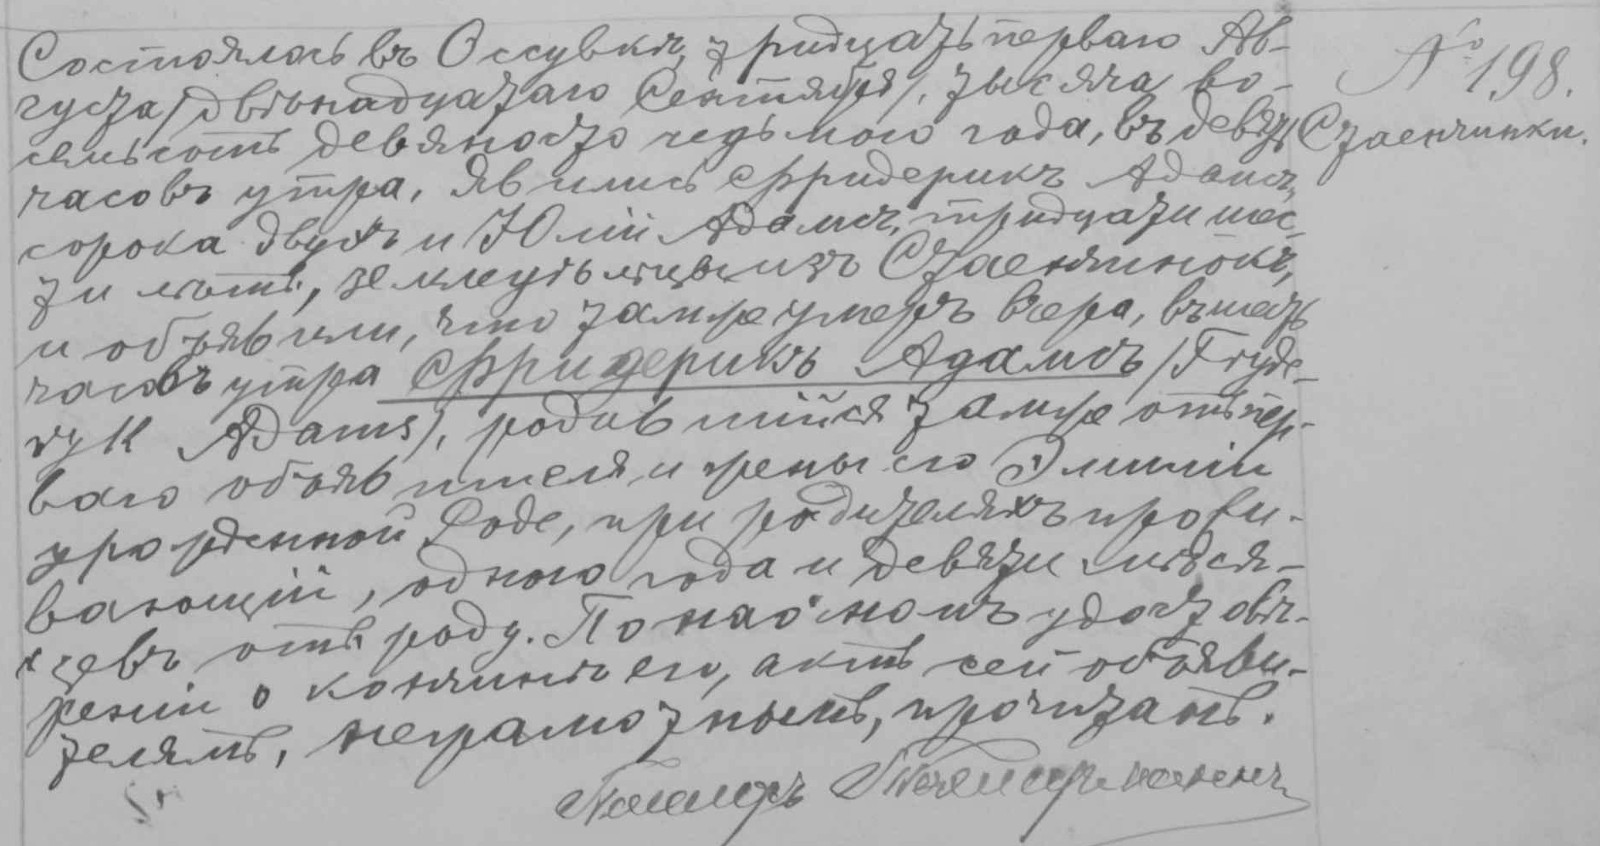 Состоялось въ Оссувкѣ, тридцать перваго Ав-
густа /двѣнадцатаго Сентября/, тысяча во-
семьсотъ девяносто седьмого года, въ девять
часовъ утра. Явились Фридерикъ Адамсъ,
сорока двухъ и Юлій Адамсъ, тридцати шес-
ти лѣтъ, земледѣльцы изъ Стаенчинокъ,
и объявили, что тамже умеръ вчера, въ шесть
часовъ утра Фридерикъ Адамсъ /Fryde-
ryk Adams/, родившійся тамже отъ пер-
ваго объявителя и жены его Эмиліи
урожденной Роде, при родителяхъ прожи-
вающій, одного года и девяти мѣся-
цевъ отъ роду. По насномъ удостовѣ-
реніи о кончинѣ его, актъ сей объяви-
телямъ, неграмотнымъ, прочитанъ.
Пасторъ
№ 198.
Стаенчинки.